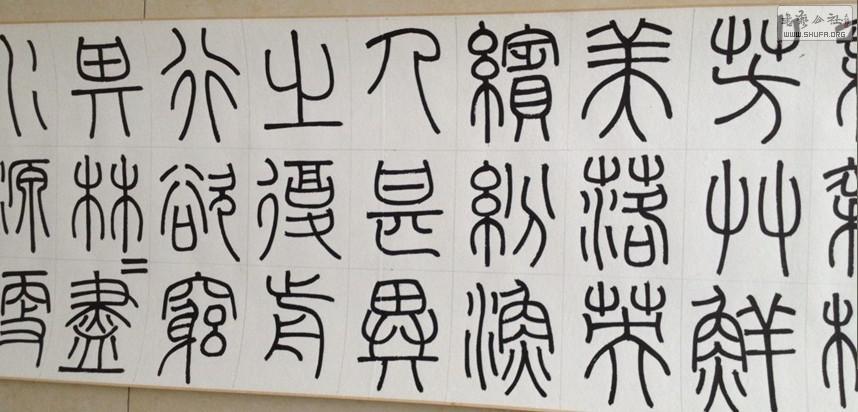 芳艸鮮
美落英
繽紛漁
人甚異
之復前
行欲窮
其林=盡
水源
书艺公社
WWW.SHUFA.ORG